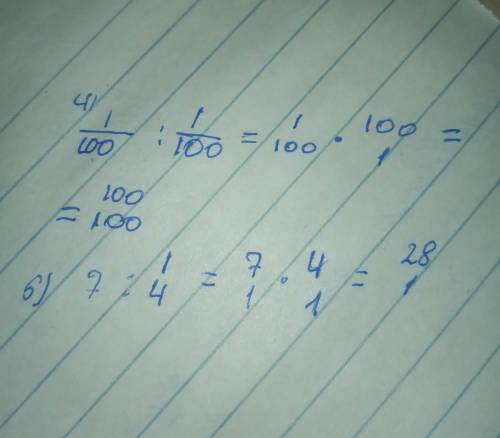 4)
1/100 : 1/100 = 1/100 · 100/1 =
= 100/100
6) 7 : 1/4 = 7/1 · 4/1 = 28/1